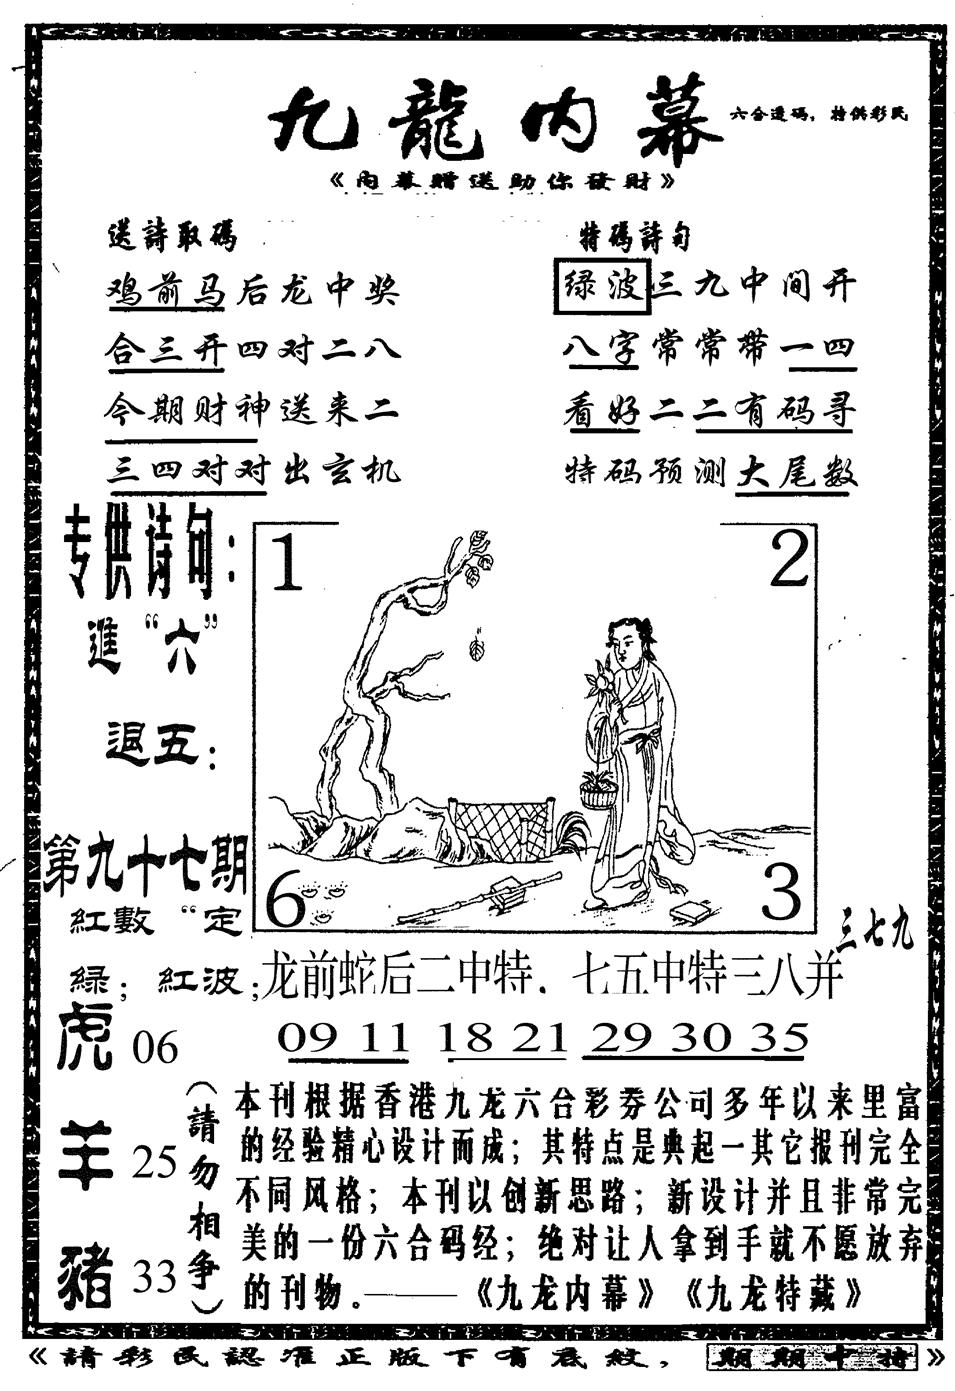 九龍内幕
六合透码，特供彩民
《内幕赠送助你發財》
送詩取碼
鸡前马后龙中奖
合三开四对二八
今期财神送来二
三四对对出玄机
特碼詩句
绿波三九中间开
八字常常带一四
看好二二有码寻
特码预测大尾数
专供诗句：
進“六”
退五：
第九十七期
紅數“定
綠；紅波；
1
2
6
3
三七九
龙前蛇后二中特．七五中特三八并
09 11 18 21 29 30 35
虎 06
羊 25
豬 33
（請勿相争）
本刊根据香港九龙六合彩券公司多年以来里富
的经验精心设计而成；其特点是典起一其它报刊完全
不同风格；本刊以创新思路；新设计并且非常完
美的一份六合码经；绝对让人拿到手就不愿放弃
的刊物。——《九龙内幕》《九龙特藏》
《請彩民認准正版下有底紋，期期中特》